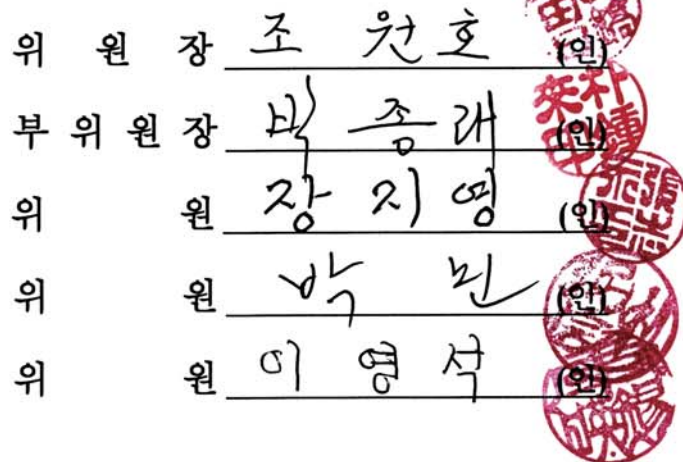 위 원 장 조 원호 (인)
부 위 원 장 박 종 래 (인)
위 원 장 지 영 (인)
위 원 박 민 (인)
위 원 이 영 석 (인)